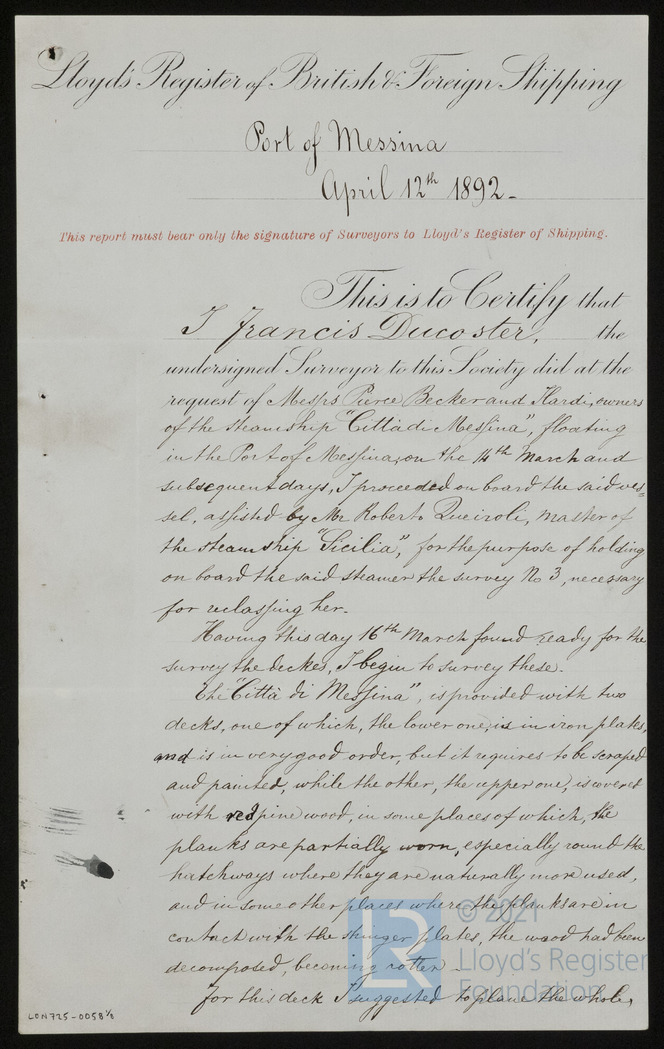 Lloyd's Register of British & Foreign Shipping
Port of Messina
April 12th 1892-
This report must bear only the signature of Surveyors to Lloyd's Register of Shipping.
This is to Certify that
I Francis Ducoster, the
undersigned Surveyor to this Society did at the
request of Messrs Pierce Becker and Ilardi, owners
of the steamship "Città di Messina", floating
in the Port of Messina, on the 14th March and
subsequent days, I proceeded on board the said ves=
sel, assisted by Mr Roberto Queiroli, master of
the steam ship "Sicilia", for the purpose of holding
on board the said steamer the survey No 3, necessary
for reclassing her.
Having this day 16th March found ready for the
survey the deckes, I begin to survey these.
The "Città di Messina", is provided with two
decks, one of which, the lower one, is in iron plates,
and is in very good order, but it requires to be scraped
and painted, while the other, the upper one, is covered
with red pine wood, in some places of which, the
planks are partially worn, especially round the
hatchways where they are naturally more used,
and in some other places where the planks are in
contact with the stringer plates, the wood had been
decomposed, becoming rotten -
For this deck I suggested to plane the whole,
LON725-0058 1/8
LR
© 2021
Lloyd's Register
Foundation